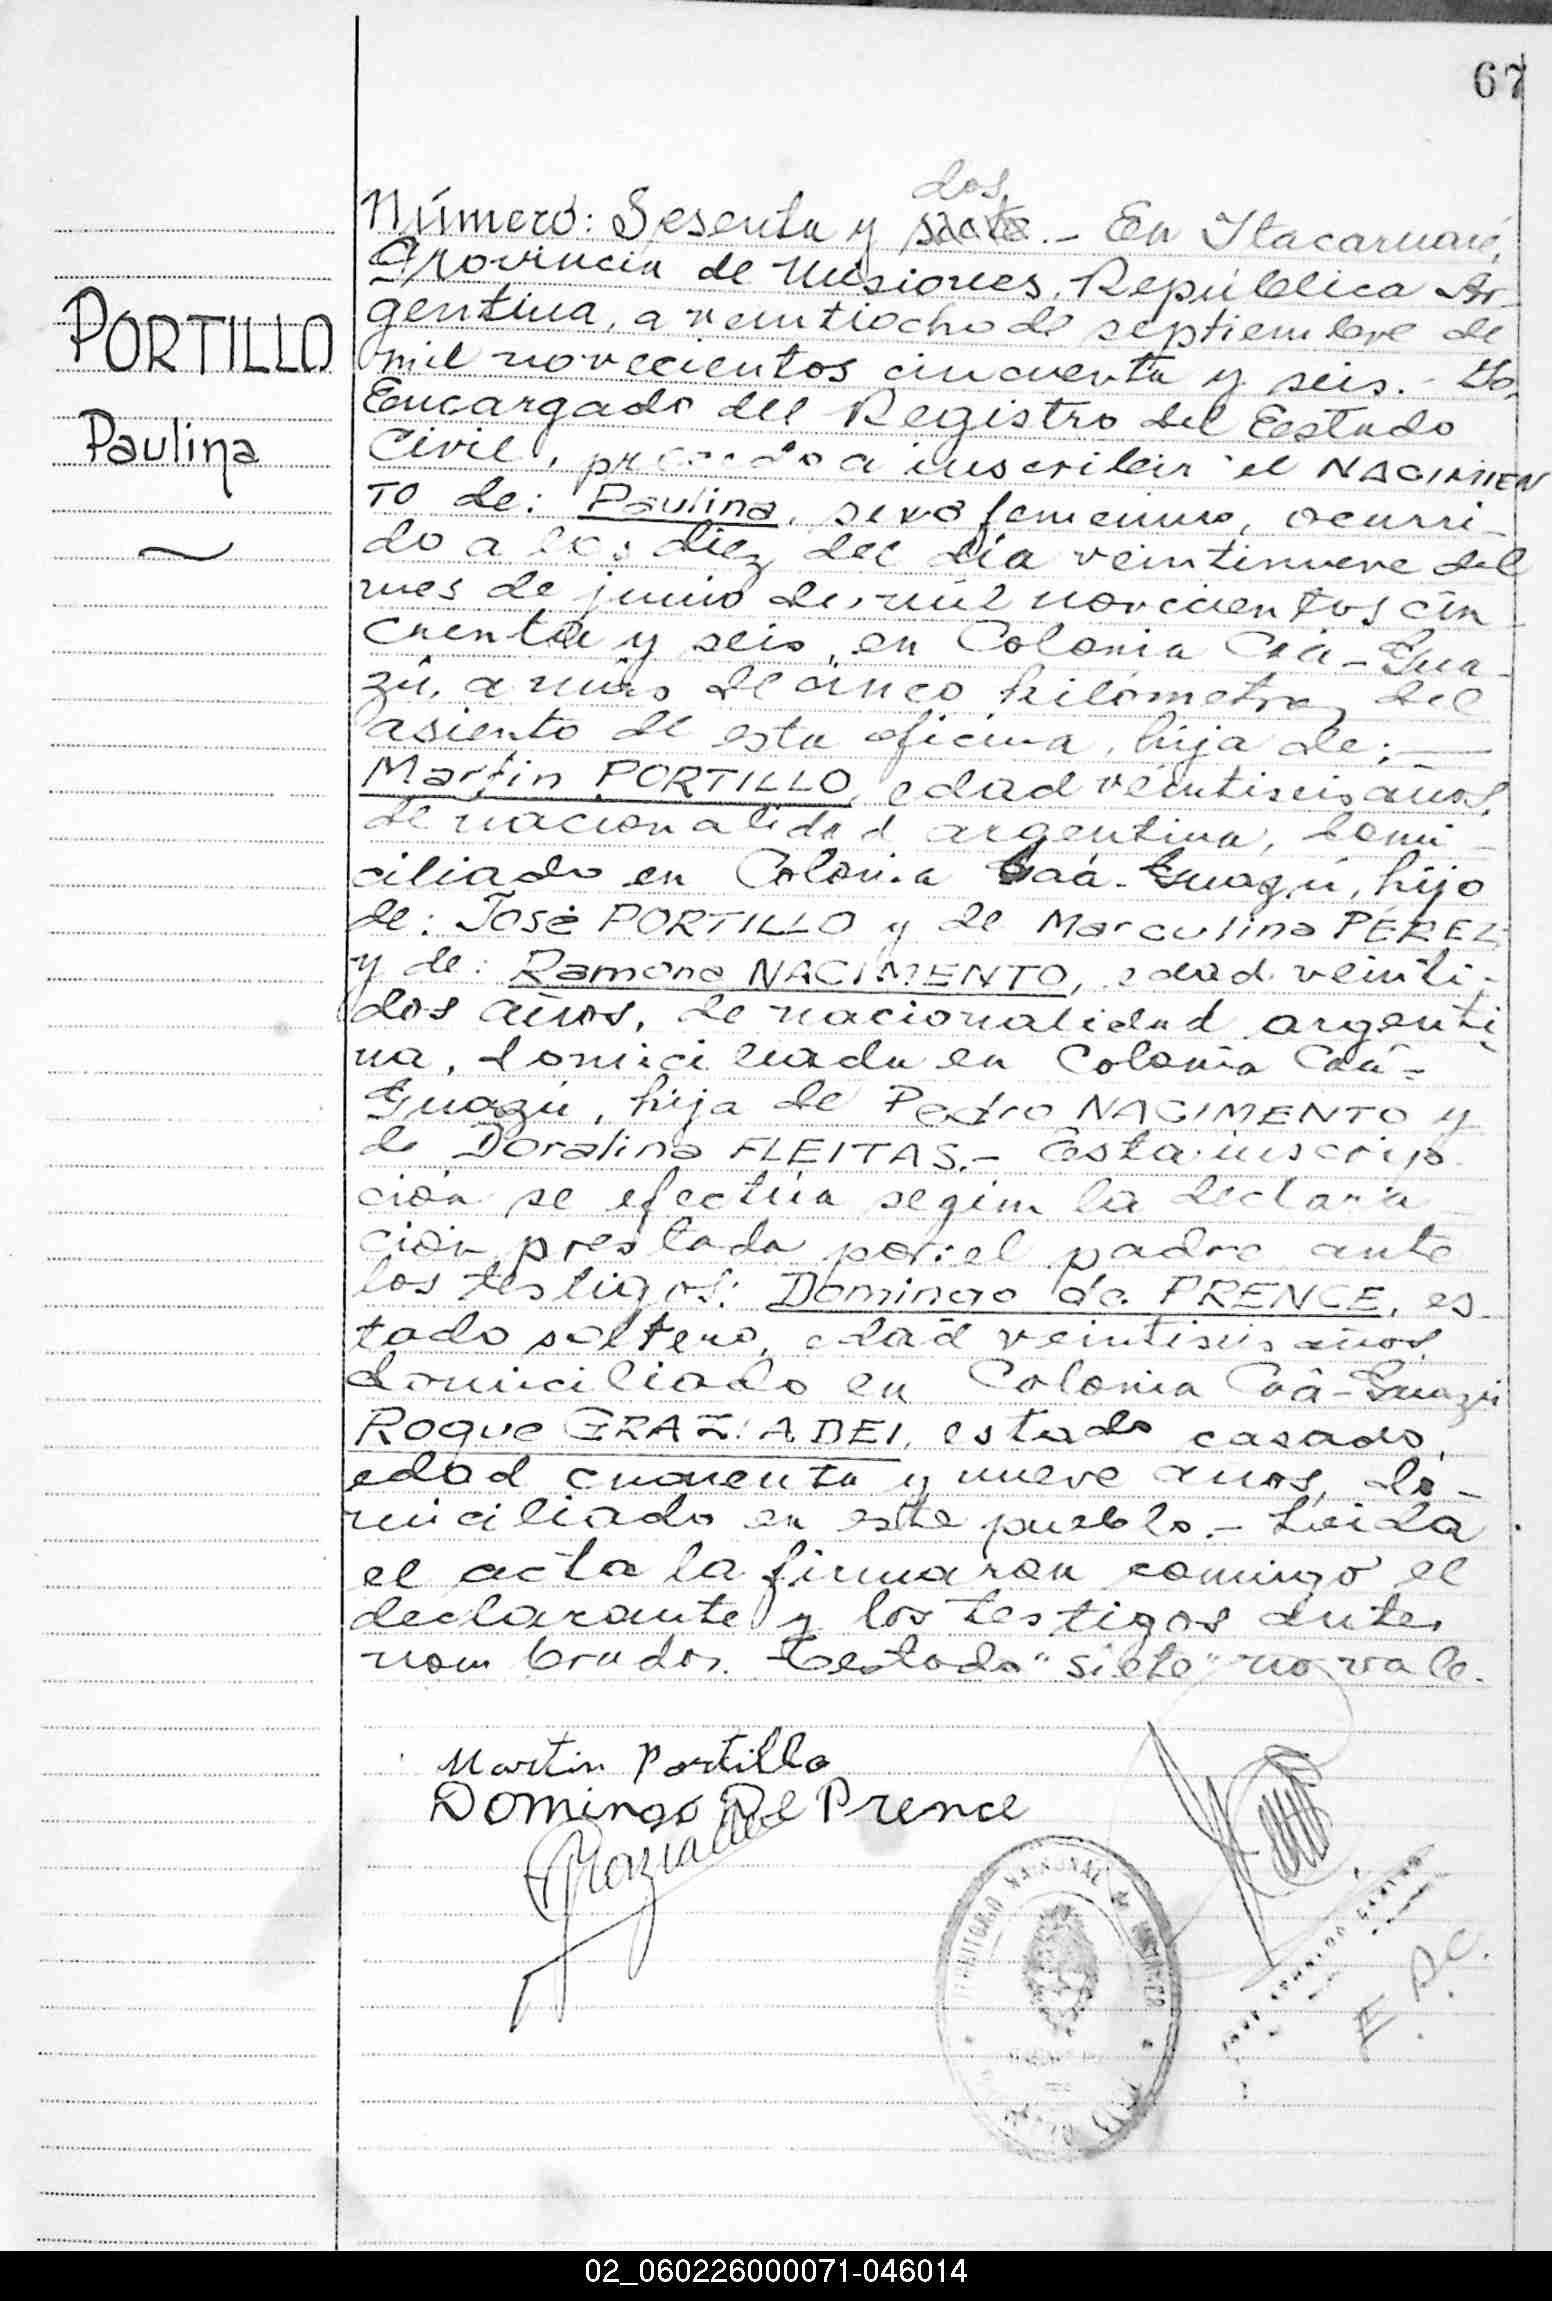 67
PORTILLO
Paulina
dos
Número: Sesenta y siete.- En Itacaruaré,
Provincia de Misiones, República Ar-
gentina, a veintiocho de septiembre de
mil novecientos cincuenta y seis.- Yo,
Encargado del Registro del Estado
Civil, procedo a inscribir el NACIMIEN
TO de: Paulina, sexo femenino, ocurri-
do a las diez del día veintinueve del
mes de junio de mil novecientos cin-
cuenta y seis, en Colonia Caá-Gua-
zú, a más de cinco kilómetros del
asiento de esta oficina, hija de:
Martin PORTILLO, edad veintiseis años,
de nacionalidad argentina, domi-
ciliado en Colonia Caá-Guazú, hijo
de: José PORTILLO y de Marculina PÉREZ
y de: Ramona NACIMENTO, edad veinti-
dos años, de nacionalidad argenti
na, domiciliada en Colonia Caá-
Guazú, hija de Pedro NACIMENTO y
de Doralina FLEITAS.- Esta inscrip
ción se efectúa según la declara-
ción prestada por: el padre ante
los testigos: Domingo de PRENCE, es-
tado soltero, edad veintiseis años,
domiciliado en Colonia Caá-Guazú
Roque GRAZIADEI, estado casado,
edad cuarenta y nueve años, do-
miciliado en este pueblo.- Leida
el acta la firmaron conmigo el
declarante y los testigos antes
nombrados. Testado "siete" no vale.
Martin Portillo
Domingo Del Prence
Graziadei
TERRITORIO NACIONAL DE MISIONES
E. R. C.
02_060226000071-046014